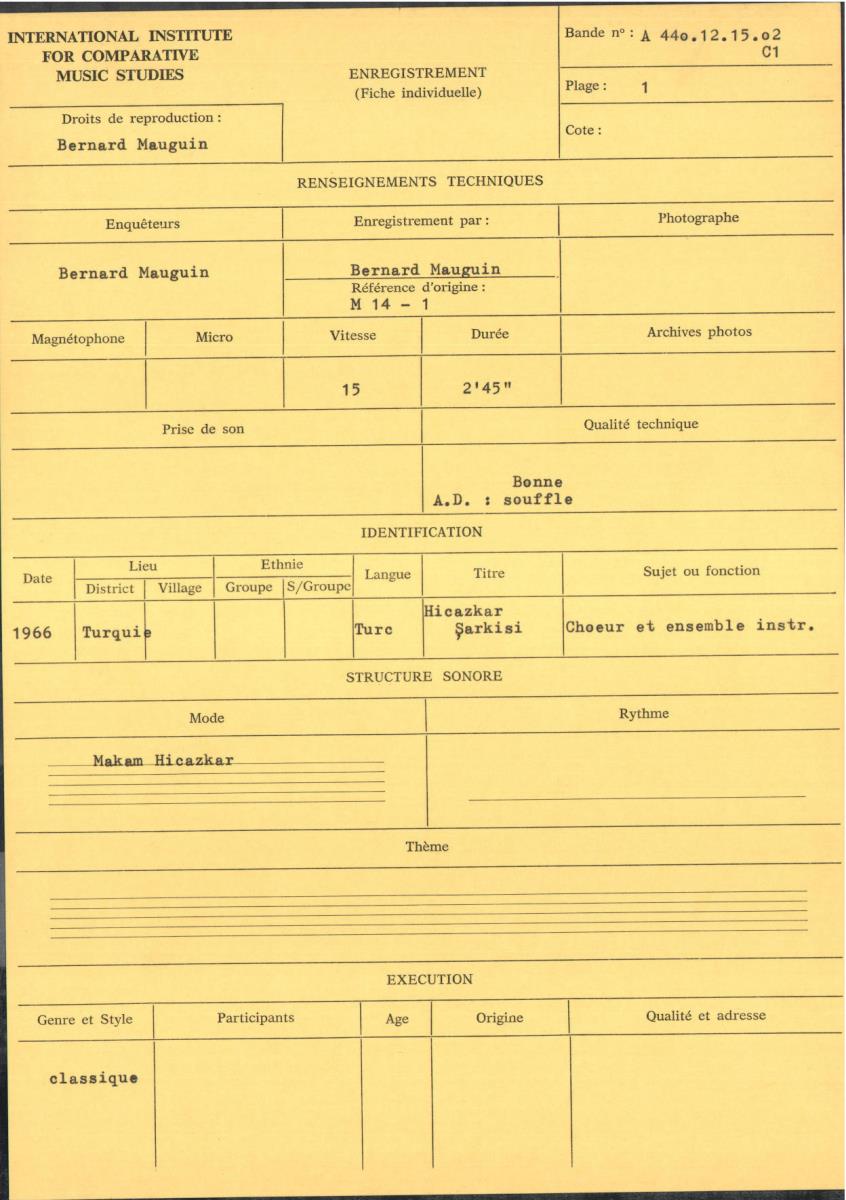 INTERNATIONAL INSTITUTE
FOR COMPARATIVE
MUSIC STUDIES
Droits de reproduction :
Bernard Mauguin
ENREGISTREMENT
(Fiche individuelle)
Bande n° : A 44o.12.15.o2
C1
Plage : 1
Cote :
RENSEIGNEMENTS TECHNIQUES
Enquêteurs
Enregistrement par :
Photographe
Bernard Mauguin
Bernard Mauguin
Référence d'origine :
M 14 - 1
Magnétophone
Micro
Vitesse
Durée
Archives photos
15
2'45"
Prise de son
Qualité technique
Bonne
A.D. : souffle
IDENTIFICATION
Date
Lieu
District
Village
Ethnie
Groupe
S/Groupe
Langue
Titre
Sujet ou fonction
1966
Turquie
Turc
Hicazkar
Şarkisi
Choeur et ensemble instr.
STRUCTURE SONORE
Mode
Rythme
Makam Hicazkar
Thème
EXECUTION
Genre et Style
Participants
Age
Origine
Qualité et adresse
classique